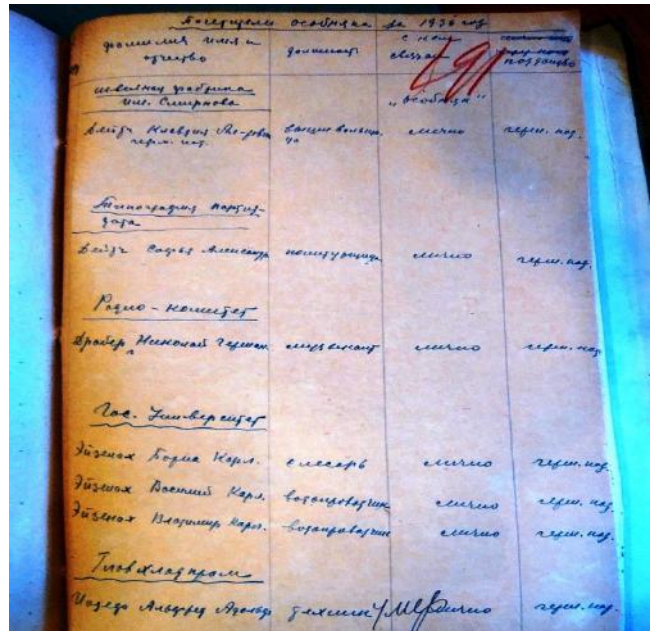 Посетители особняка за 1936 год
фамилия имя и отчество должность с кем связан подданство
491
швейная фабрика
им. Смирнова "особняка"
Дейтч Клавдия лично герм. под.
герм. под.
Типография партиз-
дата
Дейтч Софья Александр. лично герм. под.
Радио-комитет
Драбер Николай Герман. музыкант лично герм. под.
Гос. Университет
Эйзенах Борис Карл. слесарь лично герм. под.
Эйзенах Василий Карл. водопроводчик лично герм. под.
Эйзенах Владимир Карл. водопроводчик лично герм. под.
Главхладпром
Альфред Адольф техник лично герм. под.